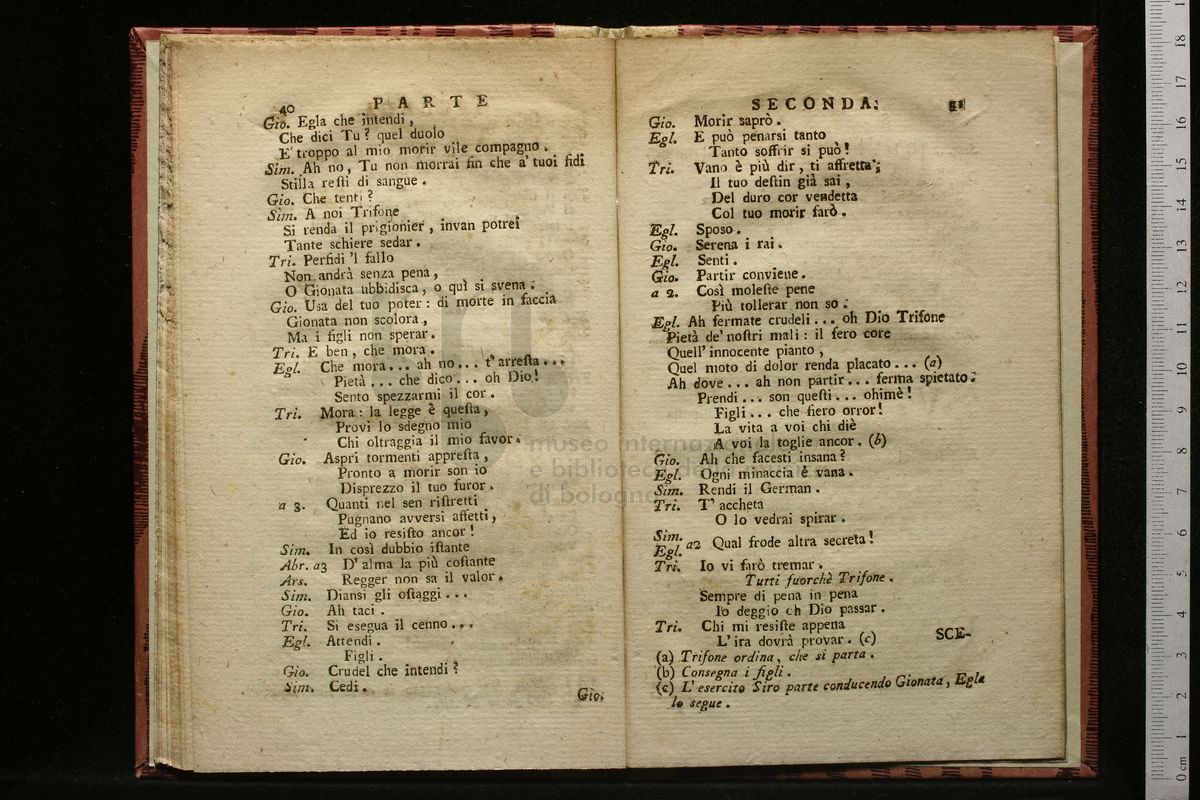 40 PARTE
Gio. Egla che intendi,
Che dici Tu? quel duolo
E' troppo al mio morir vile compagno.
Sim. Ah no, Tu non morrai fin che a' tuoi fidi
Stilla resti di sangue.
Gio. Che tenti?
Sim. A noi Trifone
Si renda il prigionier, invan potrei
Tante schiere sedar.
Tri. Perfidi 'l fallo
Non andrà senza pena,
O Gionata ubbidisca, o quì si svena.
Gio. Usa del tuo poter: di morte in faccia
Gionata non scolora,
Ma i figli non sperar.
Tri. E ben, che mora.
Egl. Che mora... ah no... t'arresta...
Pietà... che dico... oh Dio!
Sento spezzarmi il cor.
Tri. Mora: la legge è questa,
Provi lo sdegno mio
Chi oltraggia il mio favor.
Gio. Aspri tormenti appresta,
Pronto a morir son io
Disprezzo il tuo furor.
a 3. Quanti nel sen ristretti
Pugnano avversi affetti,
Ed io resisto ancor!
Sim. In così dubbio istante
Abr. a3 D'alma la più costante
Ars. Regger non sa il valor.
Sim. Diansi gli ostaggi...
Gio. Ah taci.
Tri. Si esegua il cenno...
Egl. Attendi.
Figli.
Gio. Crudel che intendi?
Sim. Cedi.
Gio.
SECONDA.
Gio. Morir saprò.
Egl. E può penarsi tanto
Tanto soffrir si può!
Tri. Vano è più dir, ti affretta;
Il tuo destin già sai,
Del duro cor vendetta
Col tuo morir farò.
Egl. Sposo.
Gio. Serena i rai.
Egl. Senti.
Gio. Partir conviene.
a 2. Così moleste pene
Più tollerar non so.
Egl. Ah fermate crudeli... oh Dio Trifone
Pietà de' nostri mali: il fero core
Quell' innocente pianto,
Quel moto di dolor renda placato... (a)
Ah dove... ah non partir... ferma spietato.
Prendi... son questi... ohimè!
Figli... che fiero orror!
La vita a voi chi diè
A voi la toglie ancor. (b)
Gio. Ah che facesti insana?
Egl. Ogni minaccia è vana.
Sim. Rendi il German.
Tri. T'accheta
O lo vedrai spirar.
Sim.
Egl. a2 Qual frode altra secreta!
Tri. Io vi farò tremar.
Tutti fuorchè Trifone.
Sempre di pena in pena
Io deggio oh Dio passar.
Tri. Chi mi resiste appena
L'ira dovrà provar. (c)
SCE-
(a) Trifone ordina, che si parta.
(b) Consegna i figli.
(c) L'esercito Siro parte conducendo Gionata, Egla
lo segue.
museo internaz
e bibliotec
di bologna
0 cm 1 2 3 4 5 6 7 8 9 10 11 12 13 14 15 16 17 18